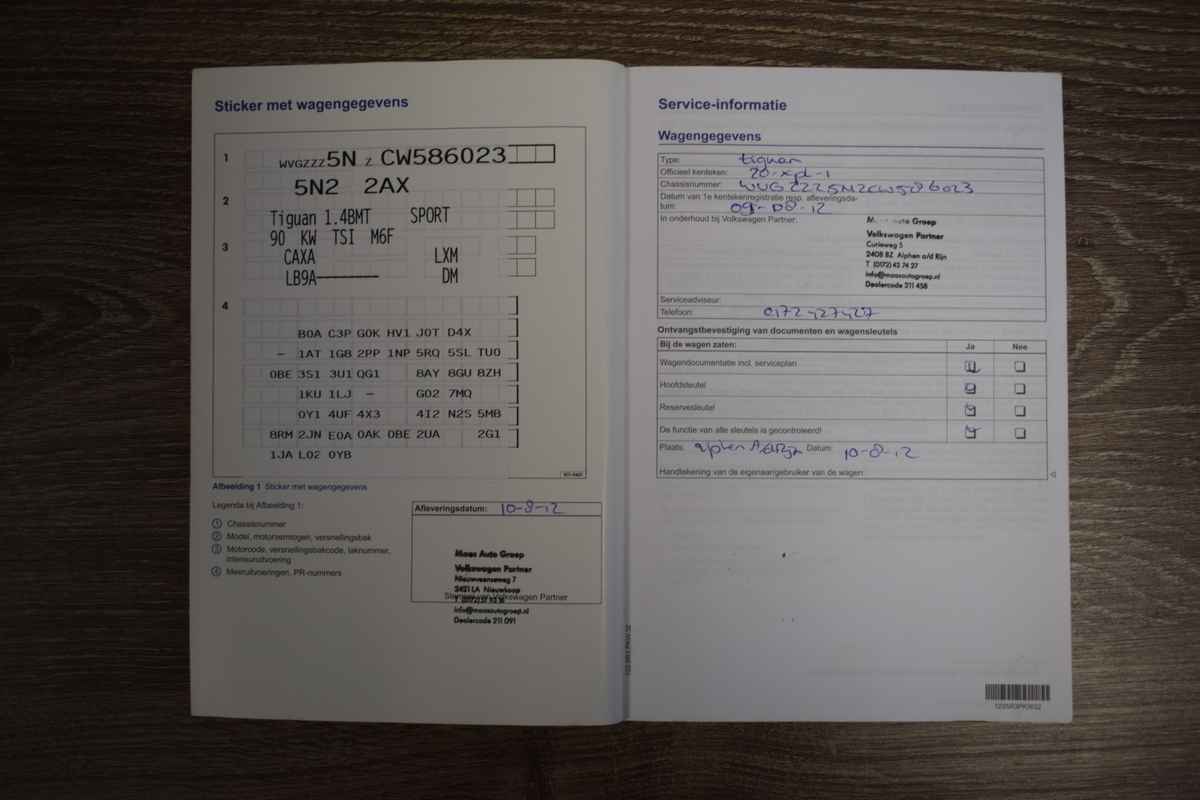 Sticker met wagengegevens
1
WVGZZZ5N Z CW586023
5N2 2AX
2
Tiguan 1.4BMT SPORT
90 KW TSI M6F
3
CAXA LXM
LB9A DM
4
B0A C3P G0K HV1 J0T D4X
- 1AT 1G8 2PP 1NP 5RQ 5SL TU0
0BE 3S1 3U1 QG1 8AY 8GU 8ZH
1KU 1LJ - G02 7MQ
0Y1 4UF 4X3 4I2 N2S 5MB
8RM 2JN E0A 0AK 0BE 2UA 2G1
1JA L02 0YB
Afbeelding 1 Sticker met wagengegevens
Legenda bij Afbeelding 1:
1 Chassisnummer
2 Model, motorvermogen, versnellingsbak
3 Motorcode, versnellingsbakcode, laknummer,
interieuruitvoering
4 Meeruitvoeringen, PR-nummers
Afleveringsdatum: 10-8-12
Maas Auto Groep
Volkswagen Partner
Nieuwveenseweg 7
2421 LA Nieuwkoop
Volkswagen Partner
info@maasautogroep.nl
Dealercode 211 091
Service-informatie
Wagengegevens
Type: tiguan
Officieel kenteken: 20-xpl-1
Chassisnummer: WVGZZZ5NZCW586023
Datum van 1e kentekenregistratie resp. afleveringsda-
tum: 09-08-12
In onderhoud bij Volkswagen Partner:
Auto Groep
Volkswagen Partner
Curieweg 5
2408 BZ Alphen a/d Rijn
T (0172) 42 74 27
info@maasautogroep.nl
Dealercode 211 458
Serviceadviseur:
Telefoon: 0172427427
Ontvangstbevestiging van documenten en wagensleutels
Bij de wagen zaten: Ja Nee
Wagendocumentatie incl. serviceplan
Hoofdsleutel
Reservesleutel
De functie van alle sleutels is gecontroleerd!
Plaats: alphen Datum: 10-8-12
Handtekening van de eigenaar/gebruiker van de wagen: